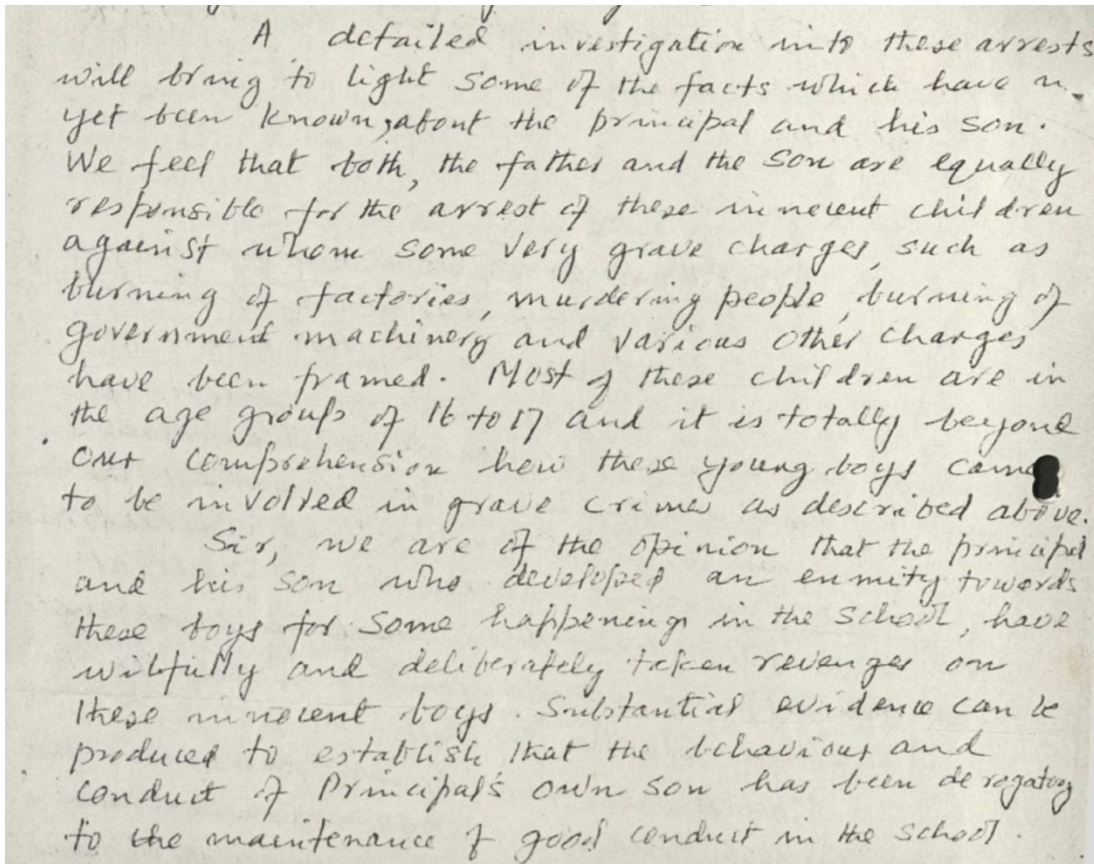 A detailed investigation into these arrests
will bring to light some of the facts which have
yet been known, about the principal and his son.
We feel that both, the father and the son are equally
responsible for the arrest of these innocent children
against whom some very grave charges, such as
burning of factories, murdering people, burning of
government machinery and various other charges
have been framed. Most of these children are in
the age groups of 16 to 17 and it is totally beyond
our comprehension how these young boys came
to be involved in grave crimes as described above.
Sir, we are of the opinion that the principal
and his son who developed an enmity towards
these boys for some happenings in the school, have
wilfully and deliberately taken revenges on
these innocent boys. Substantial evidence can be
produced to establish that the behaviour and
conduct of Principal's own son has been derogatory
to the maintenance of good conduct in the school.